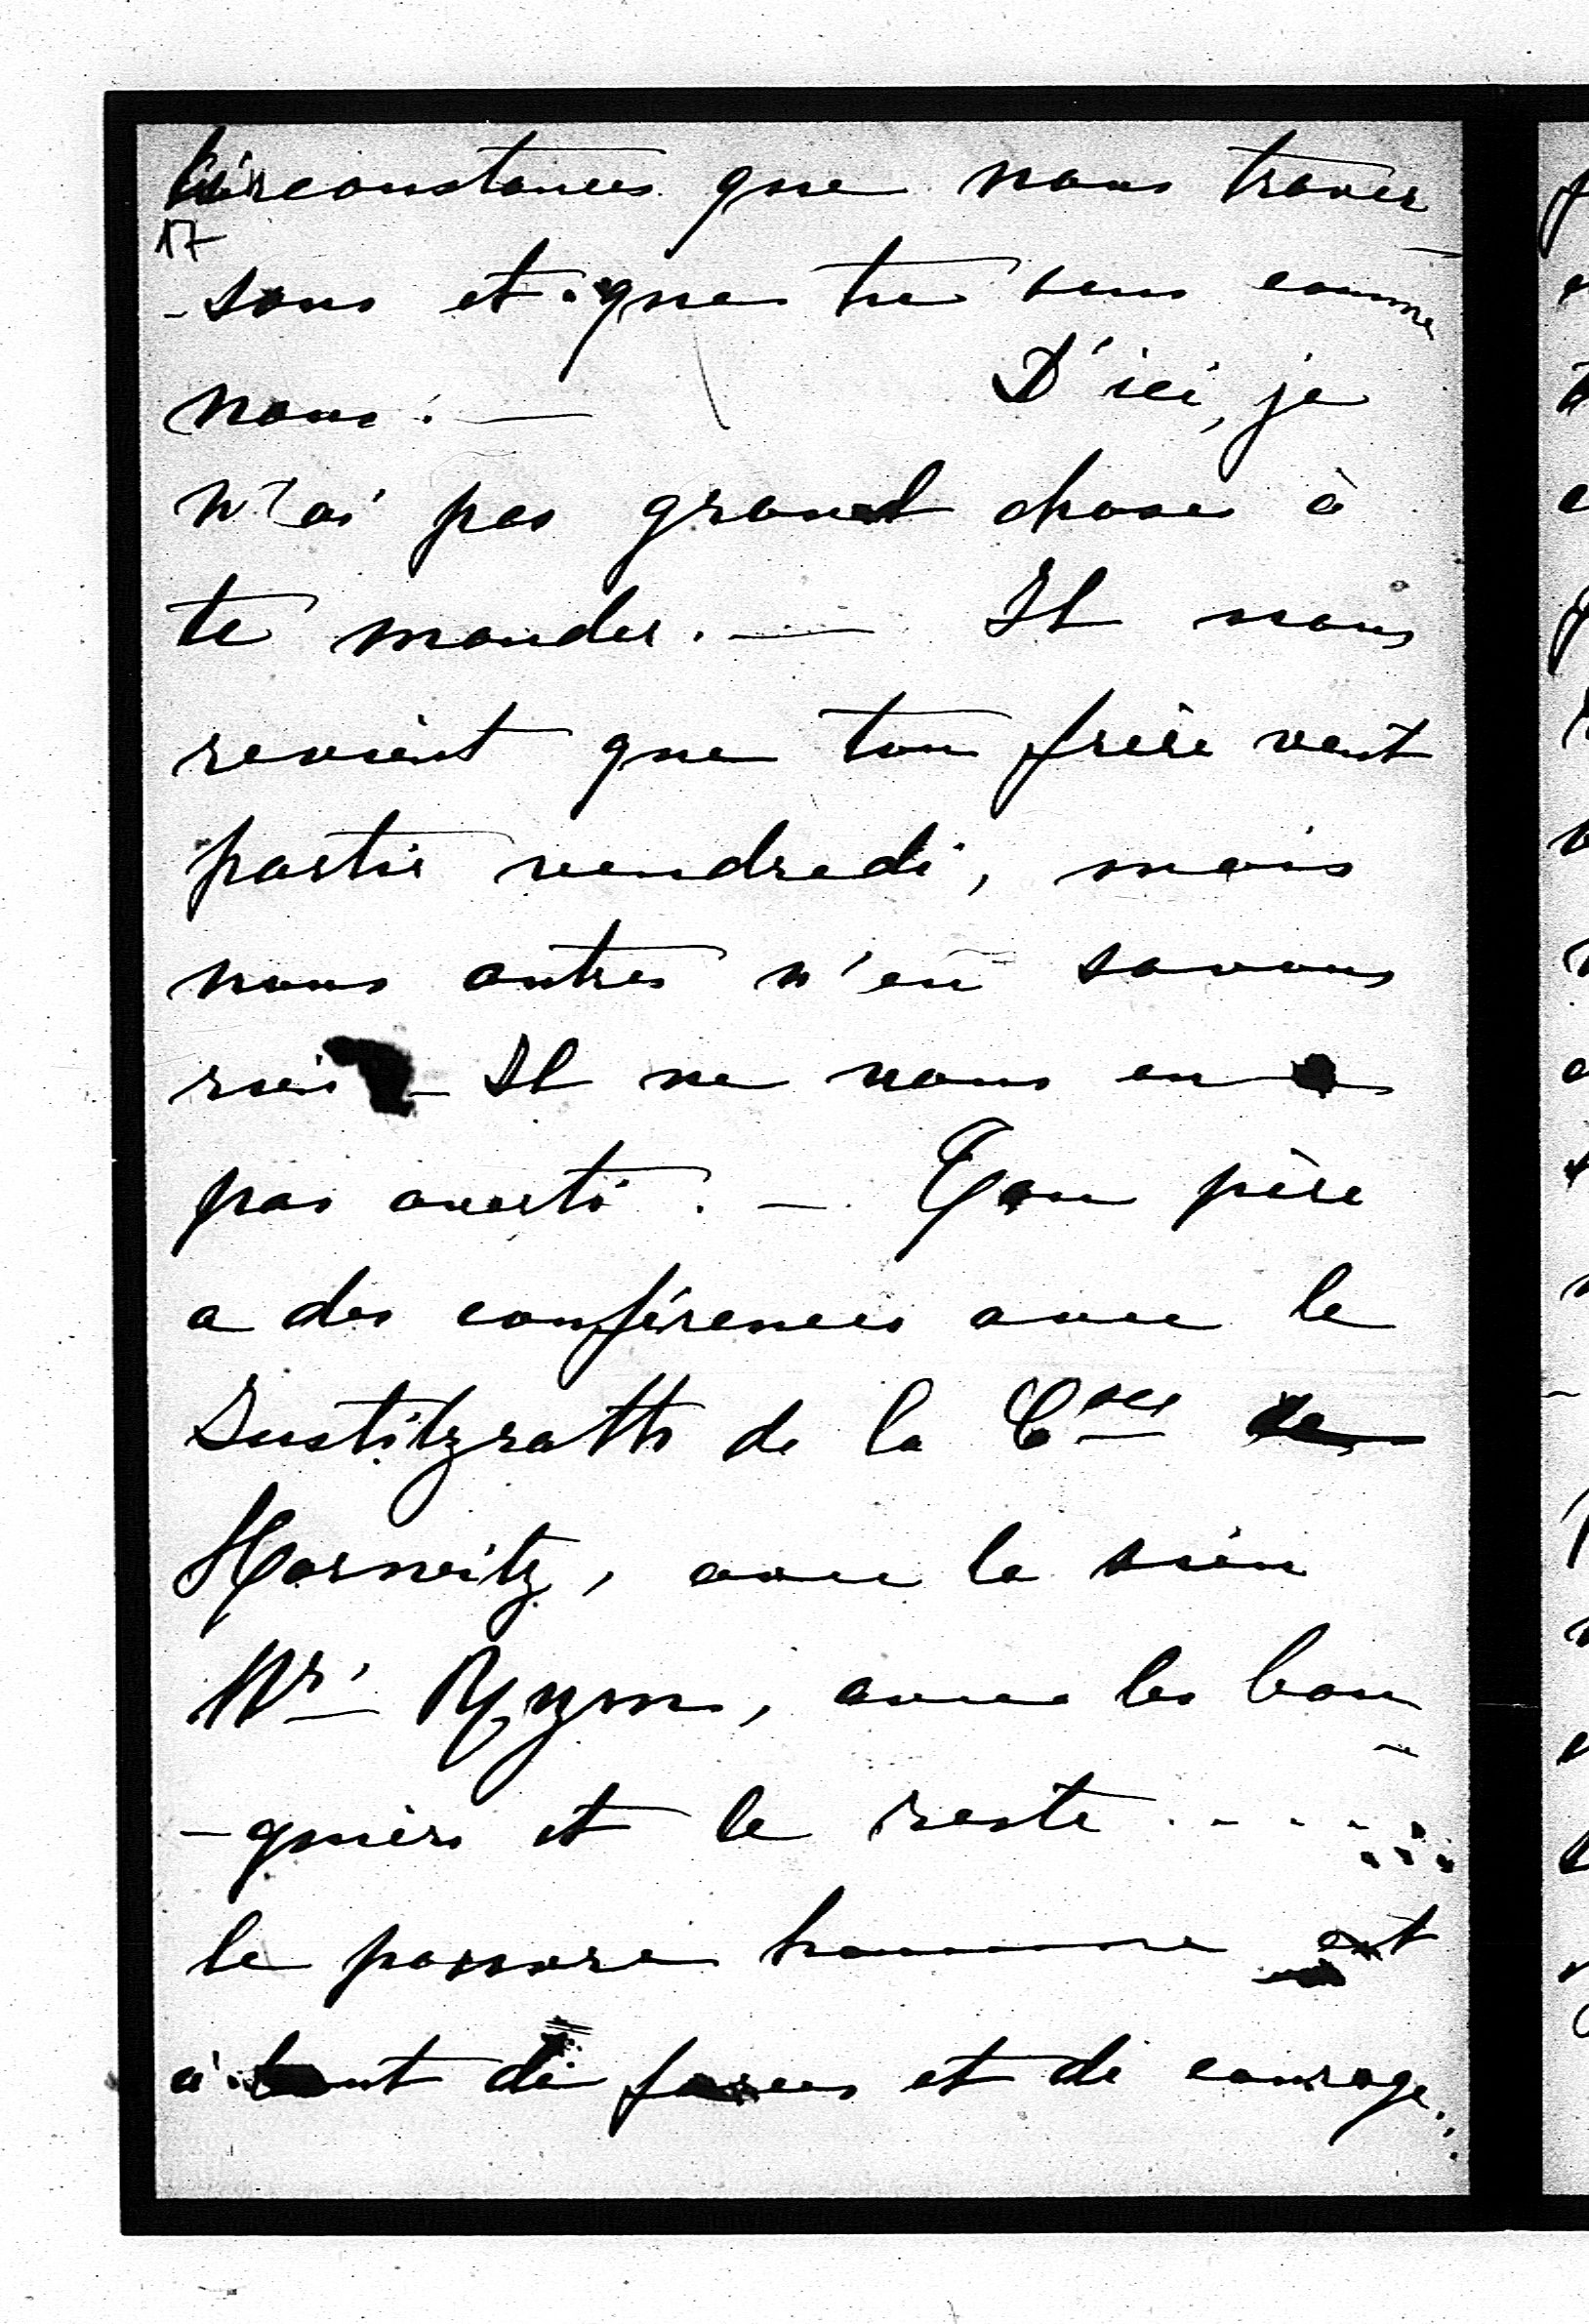 circonstances que nous traver-
17
-sons et que tu sens comme
nous. — D'ici, je
n'ai pas grand chose à
te mander. — Il nous
revient que ton frère veut
partir vendredi, mais
nous autres n'en savons
rien — Il ne nous en a
pas averti. — Ton père
a des conférences avec le
Justitzrath de la Csse de
Horwitz, avec le sien
Mr, avec les ban-
-quiers et le reste .....
le pauvre homme est
à bout de forces et de courage...